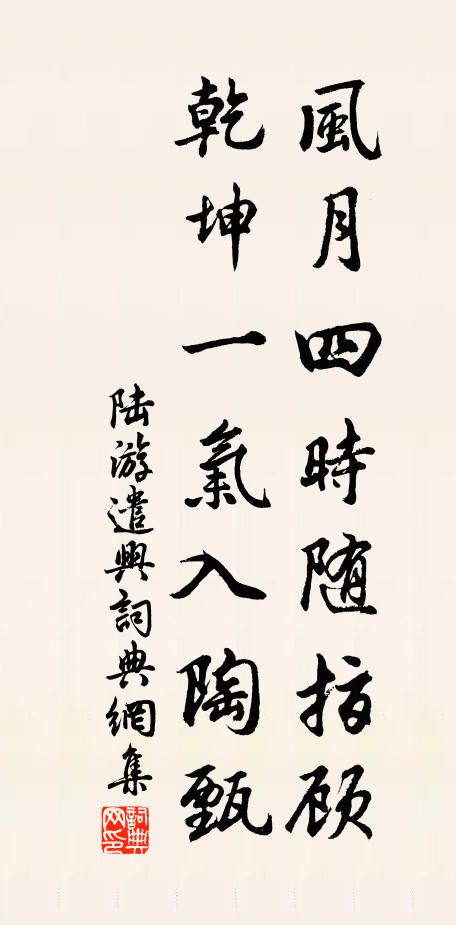 風月四時随指顾
乾坤一氣入陶甄
陆游遣興詞典網集
詞典